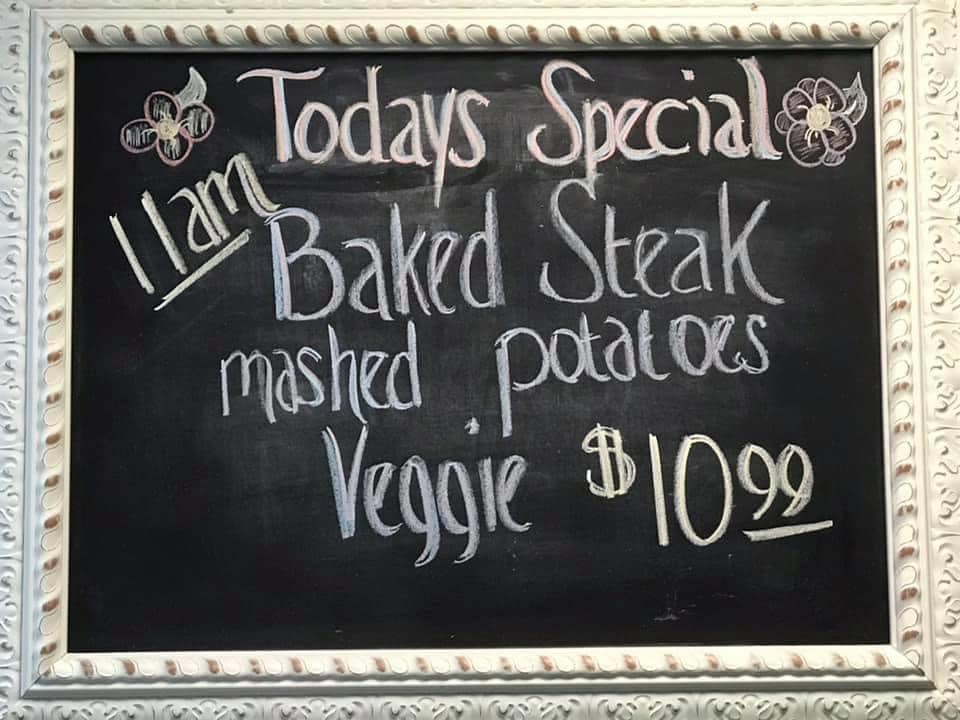 Todays Special
11am
Baked Steak
mashed potatoes
Veggie $10.99